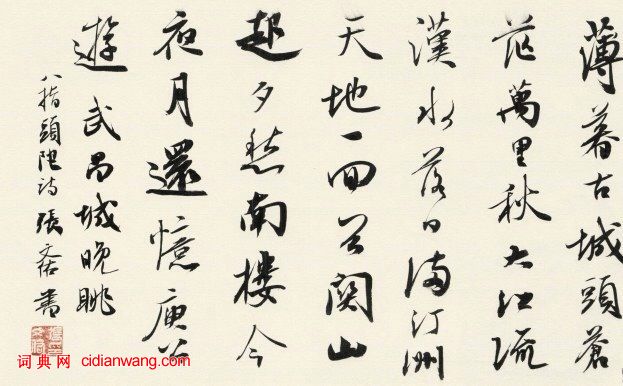 薄暮古城頭蒼
茫萬里秋大江流
漢水落日滿汀洲
天地一回首關山
起夕愁南樓今
夜月還憶庾公
遊 武昌城晚眺
八指頭陀詩 張 書
词典网 cidianwang.com